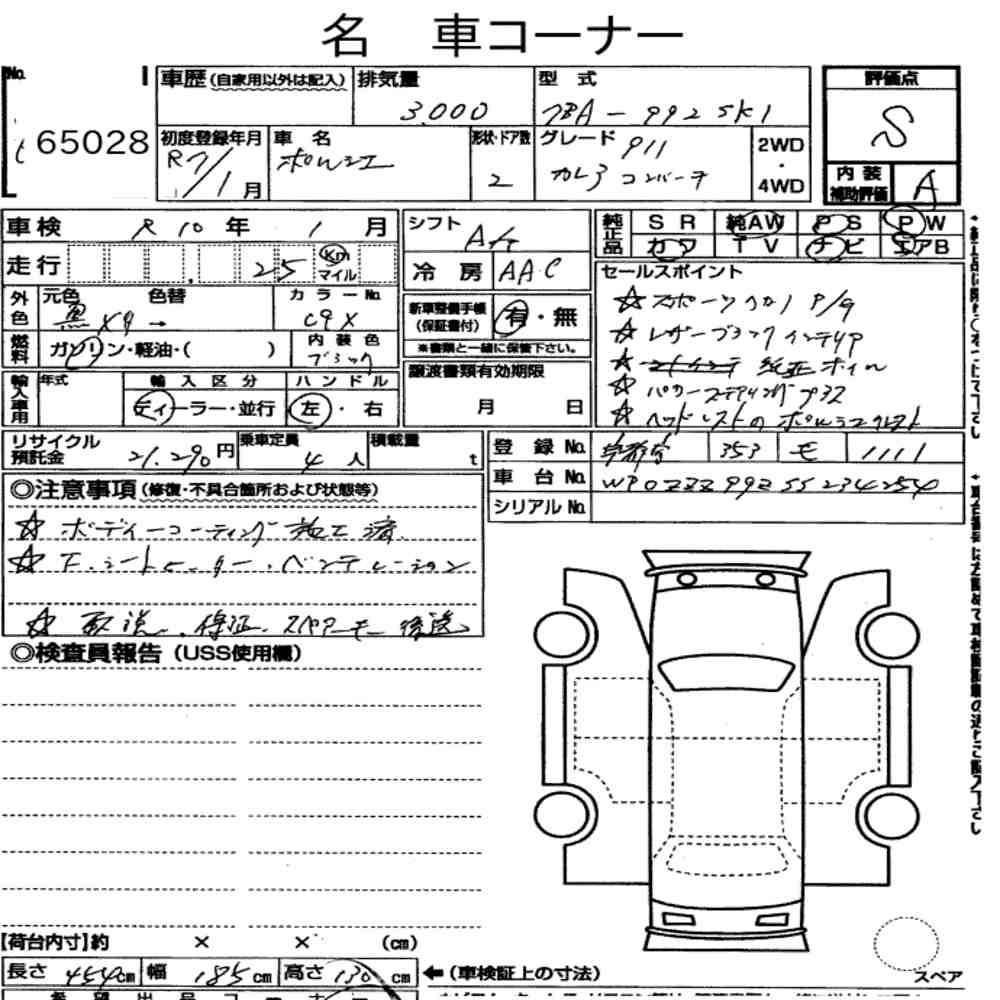 名 車コーナー
No.
65028
車歴(自家用以外は記入)
排気量
3.000
型式
7BA-992SK1
評価点
S
初度登録年月
R7/1月
車名
ポルシェ
形状・ドア数
2
グレード
911
カレラ コンバーチ
2WD
・
4WD
内装
補助評価
A
車検 R10年 1月
シフト
AT
純正品
SR 純AW PS PW
カワ TV ナビ エアB
走行
25
Km
マイル
冷房 AAC
セールスポイント
外色
元色
黒
色替
X9→
カラーNo.
C9X
新車整備手帳
(保証書付)
有・無
※書類と一緒に保管下さい。
☆スポーツクロノ P/G
☆レザーブラックインテリア
燃料
ガソリン・軽油・( )
内装色
ブラック
純正ホイル
輸入車用
年式
輸入区分
ハンドル
ディーラー・並行
左・右
譲渡書類有効期限
月 日
☆パワーステアリングプラス
☆ヘッドレストのポルシェクレスト
リサイクル
預託金
21.290円
乗車定員
4人
積載量
t
登録No. 宇都宮 353 モ 1111
車台No. WP0ZZZ99ZSS234254
シリアルNo.
◎注意事項(修復・不具合箇所および状態等)
☆ボディーコーティング施工済
☆F.シートヒーター・ベンチレーション
☆取説、保証、スペアキー後送
◎検査員報告(USS使用欄)
【荷台内寸】約 × × (cm)
長さ 454cm 幅 185cm 高さ 130cm
←(車検証上の寸法)
スペア